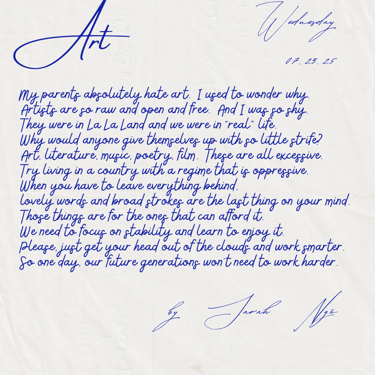 Art
Wednesday
07. 23. 25
My parents absolutely hate art. I used to wonder why.
Artists are so raw and open and free. And I was so shy.
They were in La La Land and we were in "real" life.
Why would anyone give themselves up with so little strife?
Art, literature, music, poetry, film. These are all excessive.
Try living in a country with a regime that is oppressive.
When you have to leave everything behind,
lovely words and broad strokes are the last thing on your mind.
Those things are for the ones that can afford it.
We need to focus on stability and learn to enjoy it.
Please, just get your head out of the clouds and work smarter.
So one day, our future generations won't need to work harder.
by Sarah Ngô